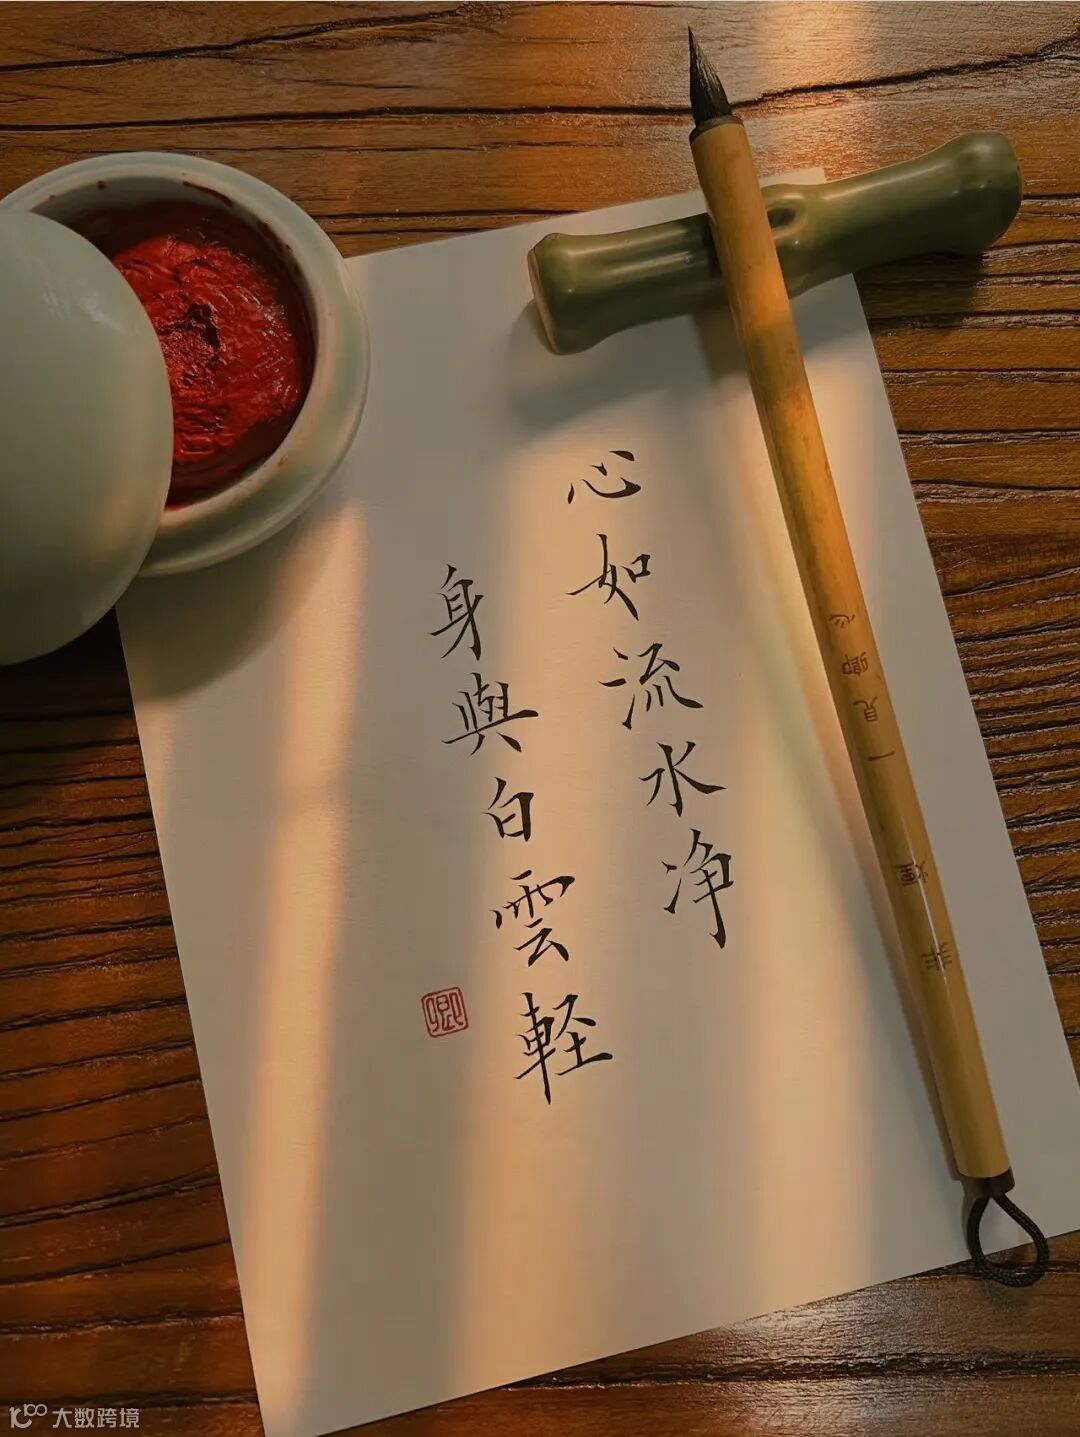 心如流水净
身與白雲軽
卿
一見卿心
大数跨境